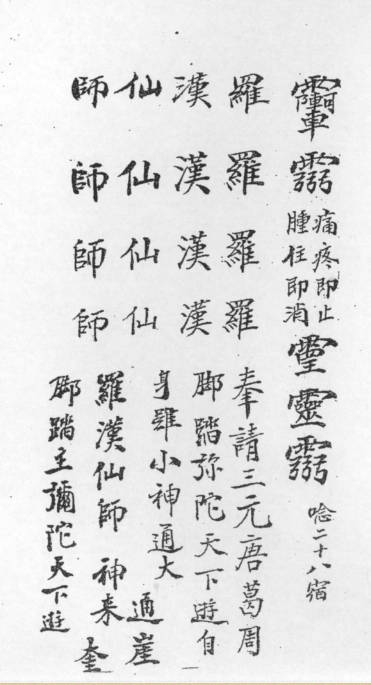 痛疼即止
腫住即消
靈
唸二十八宿
羅羅羅羅
漢漢漢漢
仙仙仙仙
師師師師
奉請三元唐葛周
脚踏弥陀天下遊自
身雖小神通大
通崖
羅漢仙師 神来
奎
脚踏主彌陀天下遊